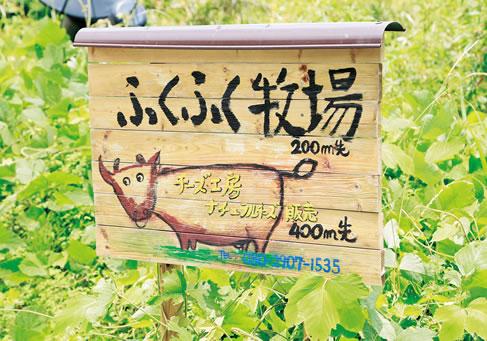 ふくふく牧場
200m先
チーズ工房
ナチュラルチーズ 販売
400m先